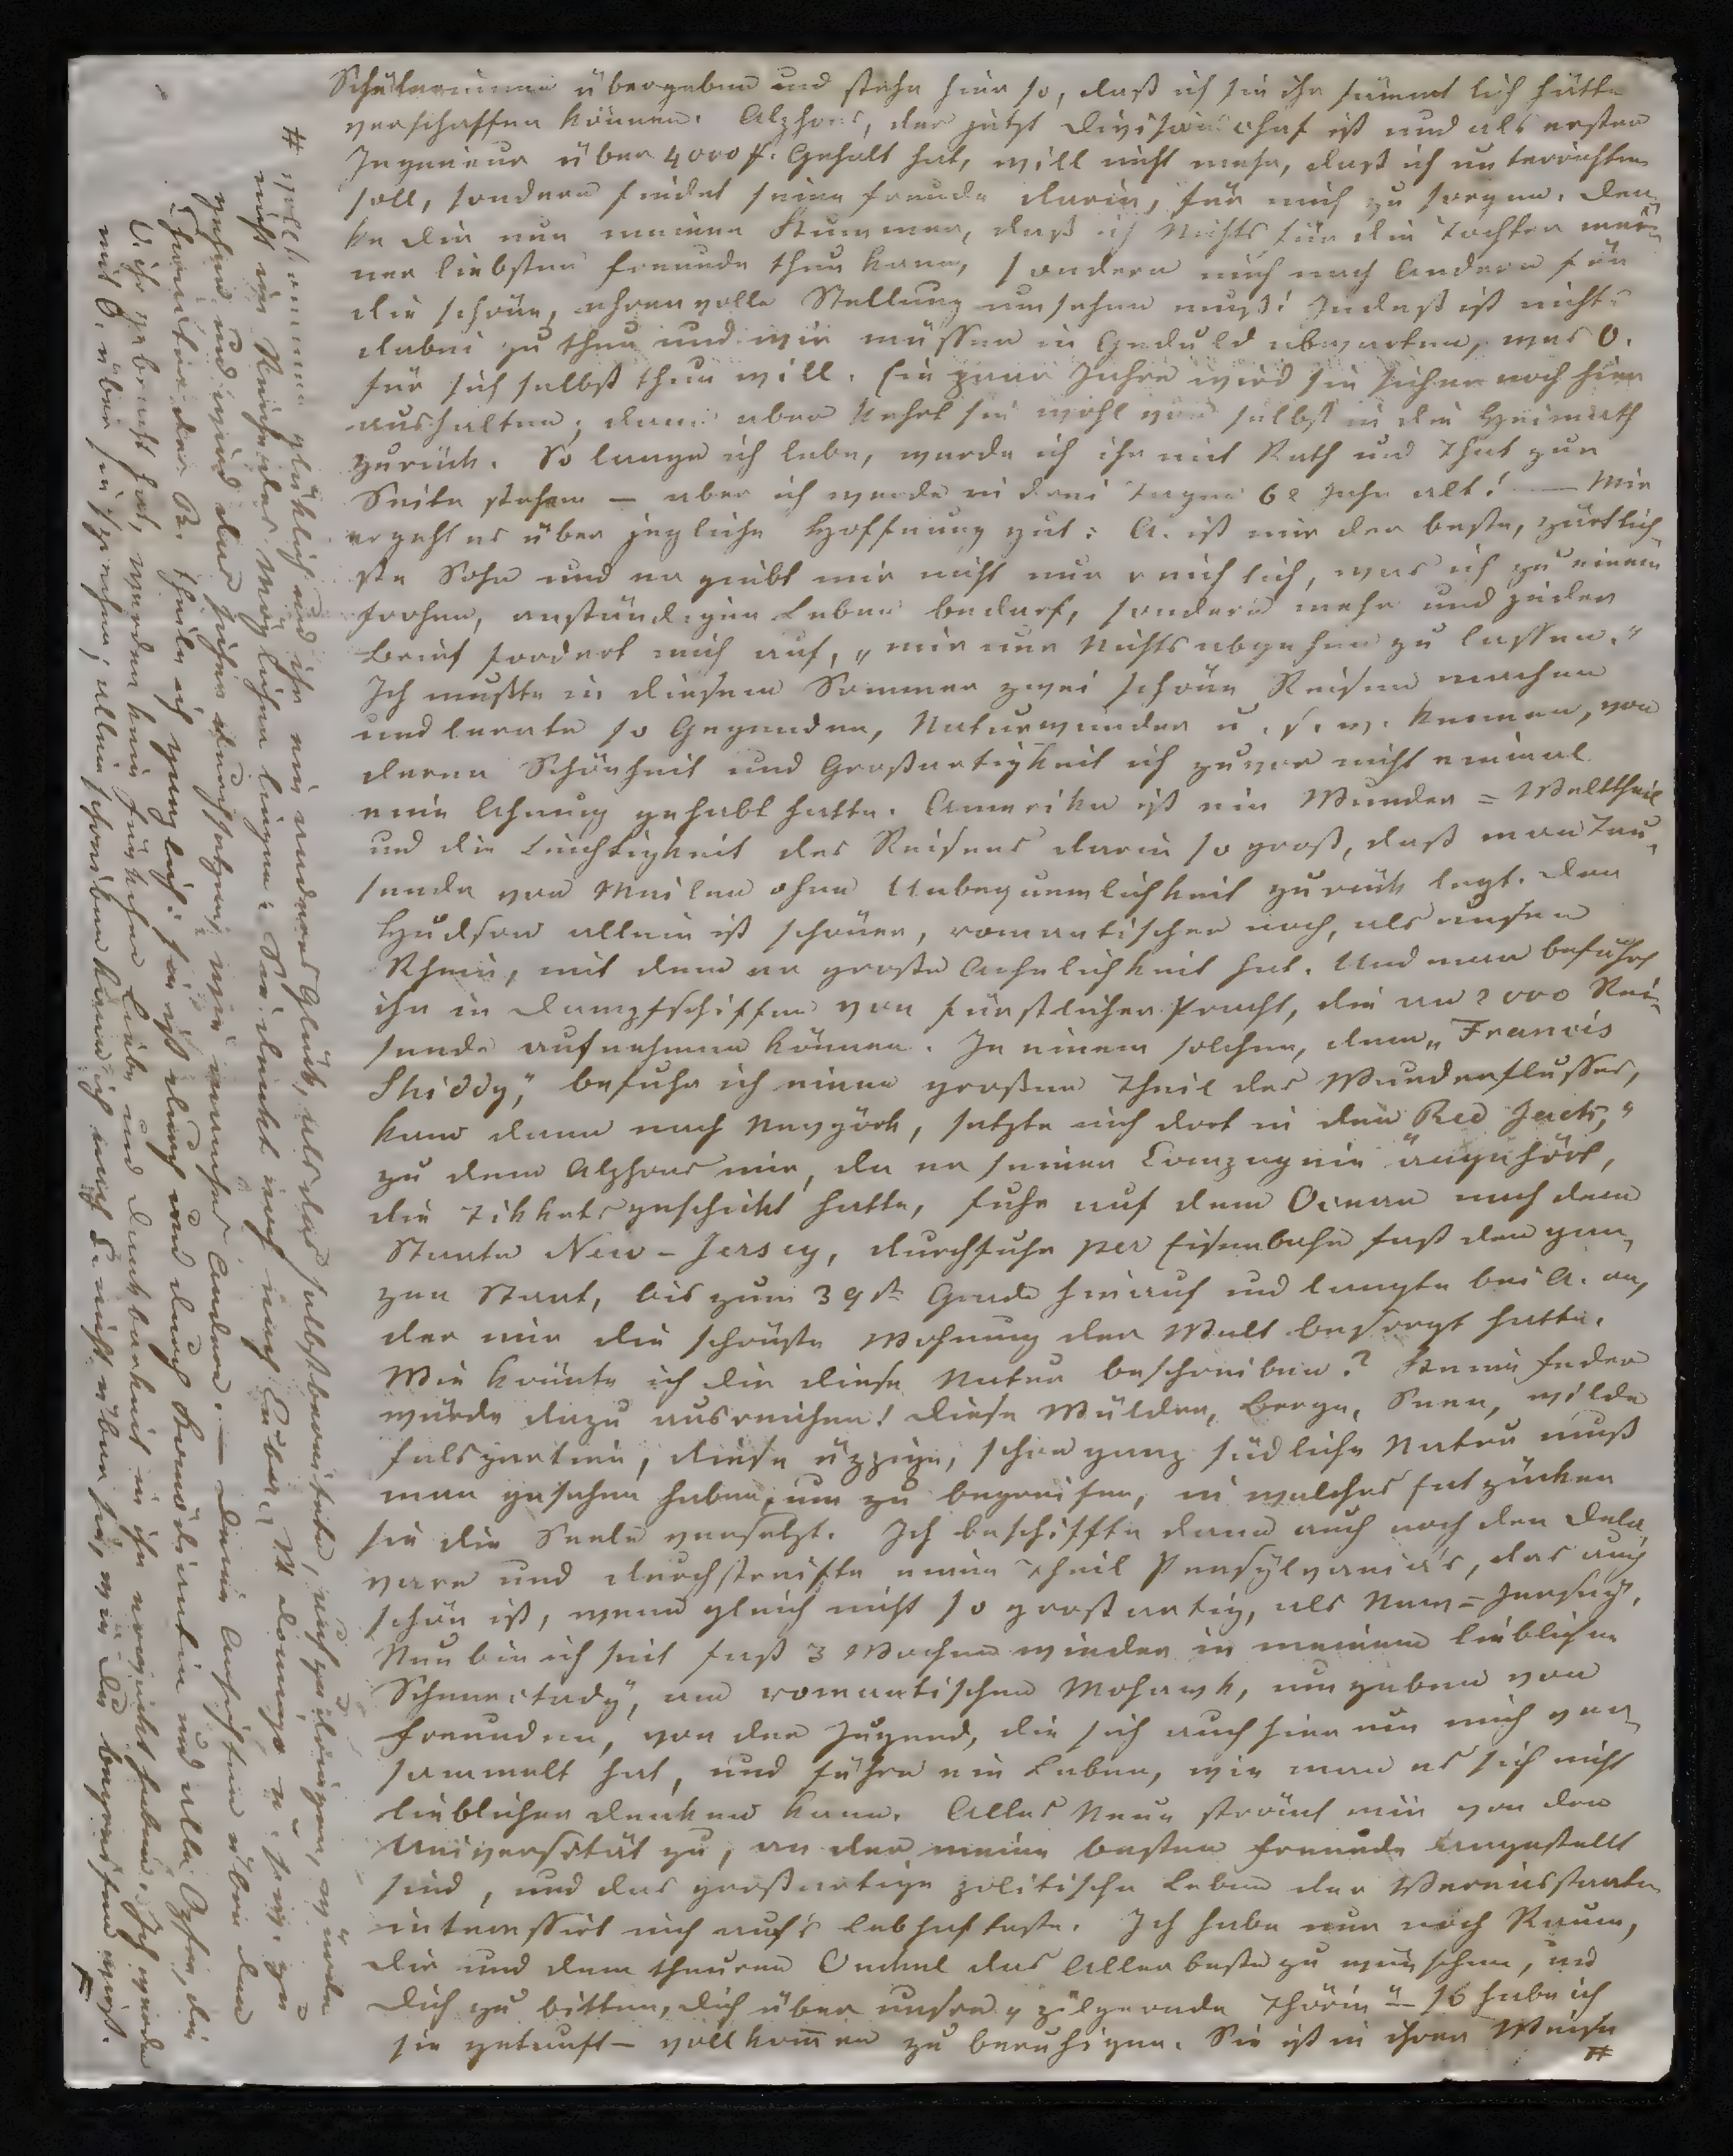 Schülerinnen übergeben und stehe hier so, daß ich sie ihr sämmtlich hätte
verschaffen können. Alphons, der jetzt Divisionschef ist und als erster
Ingenieur über 4000 f. Gehalt hat, will nicht mehr, daß ich unterrichten
soll, sondern findet seine Freude darin, für mich zu sorgen. Den¬
ke dir nun meinen Kummer, daß ich Nichts für die Tochter mei¬
ner liebsten Freunde thun kann, sondern mich nach Andern für
die schöne, ehrenvolle Stellung umsehen muß! Indeß ist nichts
dabei zu thun und wir müssen in Geduld abwarten, was O.
für sich selbst thun will. Ein paar Jahre wird sie sicher noch hier
aushalten; dann aber kehrt sie wohl von selbst in die Heimath
zurück. So lange ich lebe, werde ich ihr mit Rath und That zur
Seite stehen — aber ich werde in drei Tagen 62 Jahr alt! — Mir
ergeht es über jegliche Hoffnung gut: A. ist mir der beste, zärtlich¬
ste Sohn und er giebt mir nicht nur reichlich, was ich zu einem
frohen, anständigen Leben bedarf, sondern mehr und jeder
Brief fordert mich auf, „mir nur Nichts abgehen zu lassen."
Ich mußte in diesem Sommer zwei schöne Reisen machen
und lernte so Gegenden, Naturwunder u. s. w. kennen, von
deren Schönheit und Großartigkeit ich zuvor nicht einmal
eine Ahnung gehabt hatte. Amerika ist ein Wunder=Welttheil
und die Leichtigkeit des Reisens darin so groß, daß man Tau¬
sende von Meilen ohne Unbequemlichkeit zurück legt. Der
Hudson allein ist schöner, romantischer noch, als unser
Rhein, mit dem er große Aehnlichkeit hat. Und man befährt
ihn in Dampfschiffen von fürstlicher Pracht, die an 2000 Rei¬
sende aufnehmen können. In einem solchen, dem „Francis
Skiddy," befuhr ich einen großen Theil des Wunderflusses,
kam dann nach Newyörk, setzte mich dort in den Red Jack,"
zu dem Alphons mir, da er seiner Compagnie angehört,
die Tikkets geschickt hatte, fuhr auf dem Ocean nach dem
Staate New-Jersey, durchfuhr per Eisenbahn fast den gan¬
zen Staat, bis zum 39st Grade hinauf und langte bei A. an,
der mir die schönste Wohnung der Welt besorgt hatte.
Wie könnte ich dir diese Natur beschreiben? Keine Feder
würde dazu ausreichen! Diese Wälder, Berge, Seen, wilde
Felspartien, diese üppige, schon ganz südliche Natur muß
man gesehen haben, um zu begreifen, in welches Entzücken
sie die Seele versetzt. Ich beschiffte dann auch noch den Dela¬
ware und durchstreifte einen Theil Pensylvania's, das auch
schön ist, wenn gleich nicht so großartig, als New=Jersey.
Nun bin ich seit fast 3 Wochen wieder in meinem lieblichen
Schenectady, am romantischen Mohawk, umgeben von
Freunden, von der Jugend, die sich auch hier um mich ver¬
sammelt hat, und führe ein Leben, wie man es sich nicht
lieblicher denken kann. Alles Neue strömt mir von der
Universität zu, an der meine besten Freunde angestellt
sind, und das großartige politische Leben der Vereinsstaaten
interessirt mich auf's Lebhafteste. Ich habe nur noch Raum,
dir und dem theuren Onkel das Allerbeste zu wünschen, und
dich zu bitten, dich über unsere „pilgernde Thörin" — so habe ich
sie getauft — vollkommen zu beruhigen. Sie ist in ihrer Weise
#
# vollkommen glüklich und ihr ein anderes Glük, als das selbstbereitete, aufzudringen, würde
nicht im Reiche des Möglichen liegen. Sie denkt noch nach Cuba, St. Domingo u. s. w. zu
gehen und wird das sicher durchsetzen, wie manches Andere. — Deine Ansichten über den
Charakter der R. theile ich ganzlich: sie ist durch und durch Komödiantin und alle Opfer, die
O. ihr gebracht hat, werden kein Fünkchen Liebe und Dankbarkeit in ihr erweckt haben. Ich werde
mit O. über sie sprechen; allein schreiben kann ich nach E. nicht über sie, wie du begreifen wirst.
#